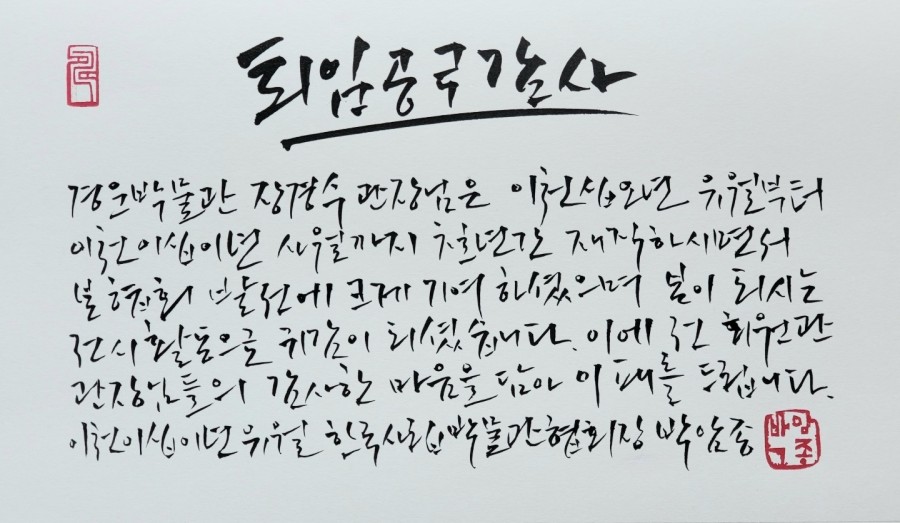 퇴임공로감사
경운박물관 장경수 관장님은 이천십오년 유월부터
이천이십이년 사월까지 칠년간 재직하시면서
본 협회 발전에 크게 기여 하셨으며 본이 되시는
전시활동으로 귀감이 되셨습니다. 이에 전 회원관
관장님들의 감사한 마음을 담아 이 패를 드립니다.
이천이십이년 유월 한국사립박물관협회장 박암종
박암종